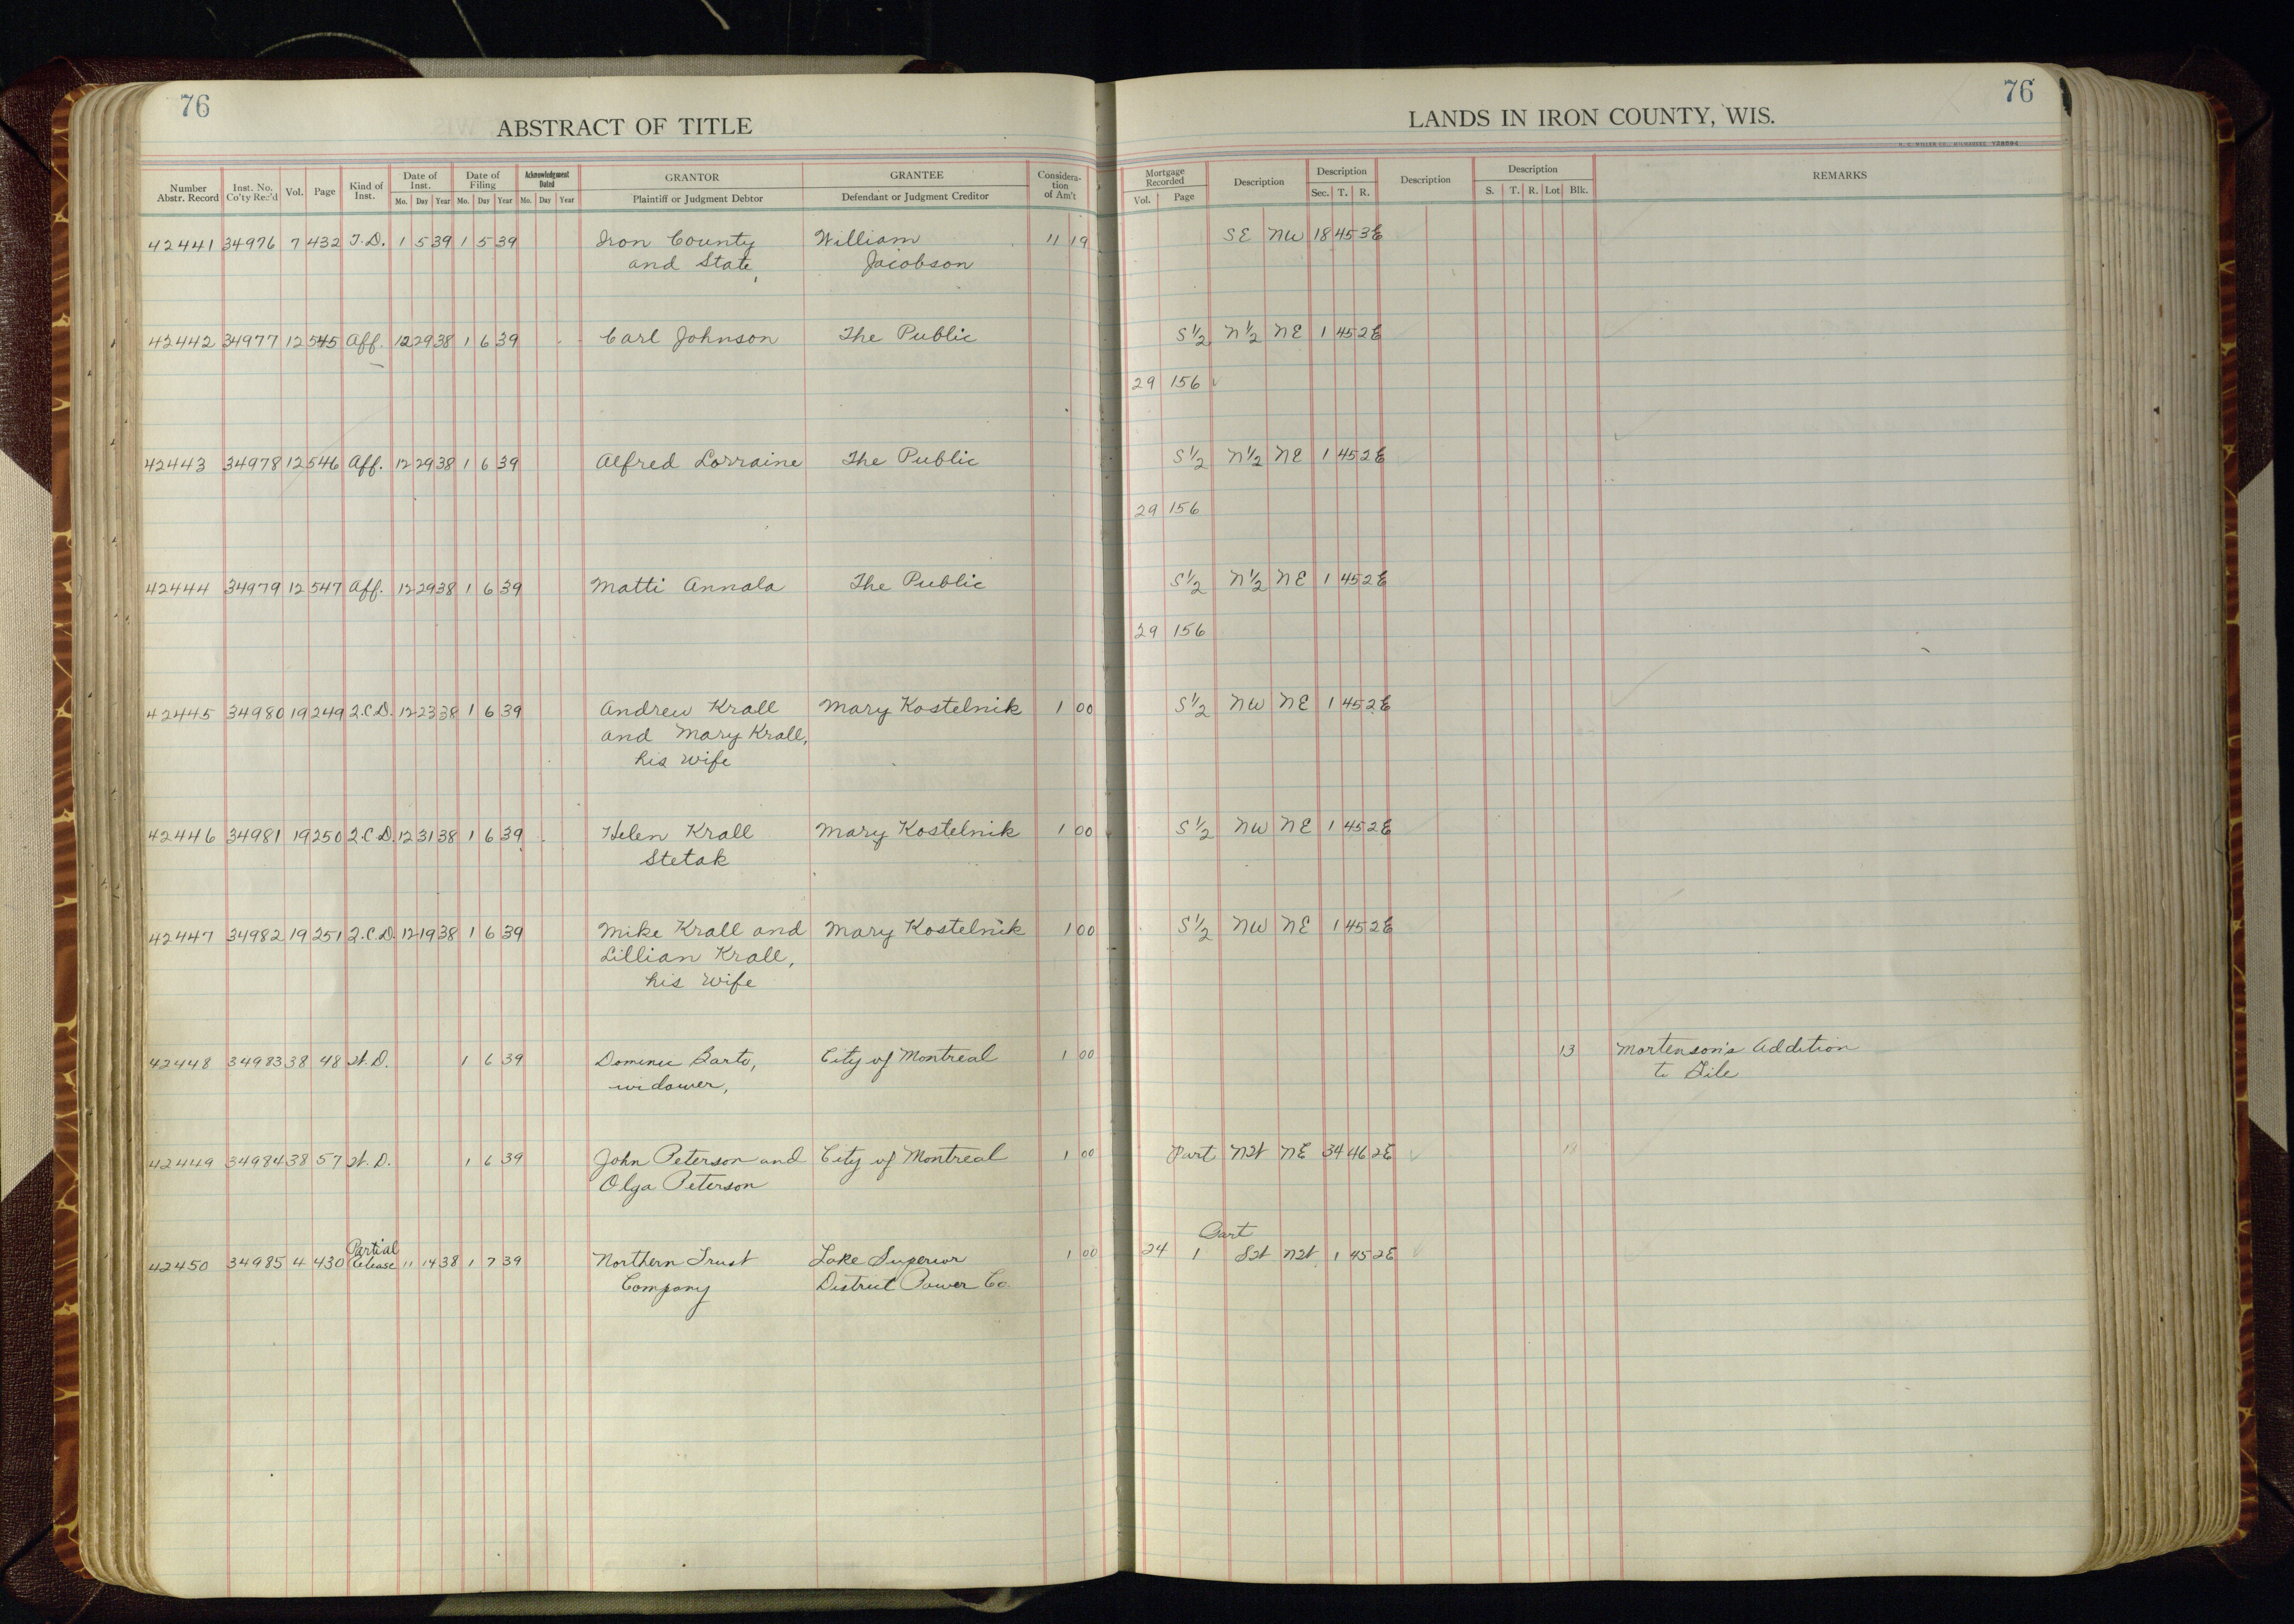 76
ABSTRACT OF TITLE
Number Abstr. Record | Inst. No. Co'ty Rec'd | Vol. | Page | Kind of Inst. | Date of Inst. Mo. Day Year | Date of Filing Mo. Day Year | Acknowledgment Dated Mo. Day Year | GRANTOR Plaintiff or Judgment Debtor | GRANTEE Defendant or Judgment Creditor | Consideration of Am't
42441 34976 7 432 T.D. 1 5 39 1 5 39 Iron County William 11 19
and State, Jacobson
42442 34977 12 545 Aff. 12 29 38 1 6 39 Carl Johnson The Public
42443 34978 12 546 Aff. 12 29 38 1 6 39 Alfred Lorraine The Public
42444 34979 12 547 Aff. 12 29 38 1 6 39 Matti Annala The Public
42445 34980 19 249 2.C.D. 12 23 38 1 6 39 Andrew Krall Mary Kostelnik 1 00
and Mary Krall,
his wife
42446 34981 19 250 2.C.D. 12 31 38 1 6 39 Helen Krall Mary Kostelnik 1 00
Stetak
42447 34982 19 251 2.C.D. 12 19 38 1 6 39 Mike Krall and Mary Kostelnik 1 00
Lillian Krall,
his wife
42448 34983 38 48 W.D. 1 6 39 Barto, City of Montreal 1 00
widower,
42449 34984 38 57 W.D. 1 6 39 John Peterson and City of Montreal 1 00
Olga Peterson
Partial
42450 34985 4 430 Release 11 14 38 1 7 39 Northern Trust Lake Superior 1 00
Company District Power Co
76
LANDS IN IRON COUNTY, WIS.
Mortgage Recorded Vol. Page | Description | Description Sec. T. R. | Description | Description S. T. R. Lot Blk. | REMARKS
SE NW 18 45 3E
S½ N½ NE 1 45 2E
29 156
S½ N½ NE 1 45 2E
29 156
S½ N½ NE 1 45 2E
29 156
S½ NW NE 1 45 2E
S½ NW NE 1 45 2E
S½ NW NE 1 45 2E
13 Mortenson's Addition
to Gile
Part NW NE 34 46 2E
Part
24 1 SW NW 1 45 2E